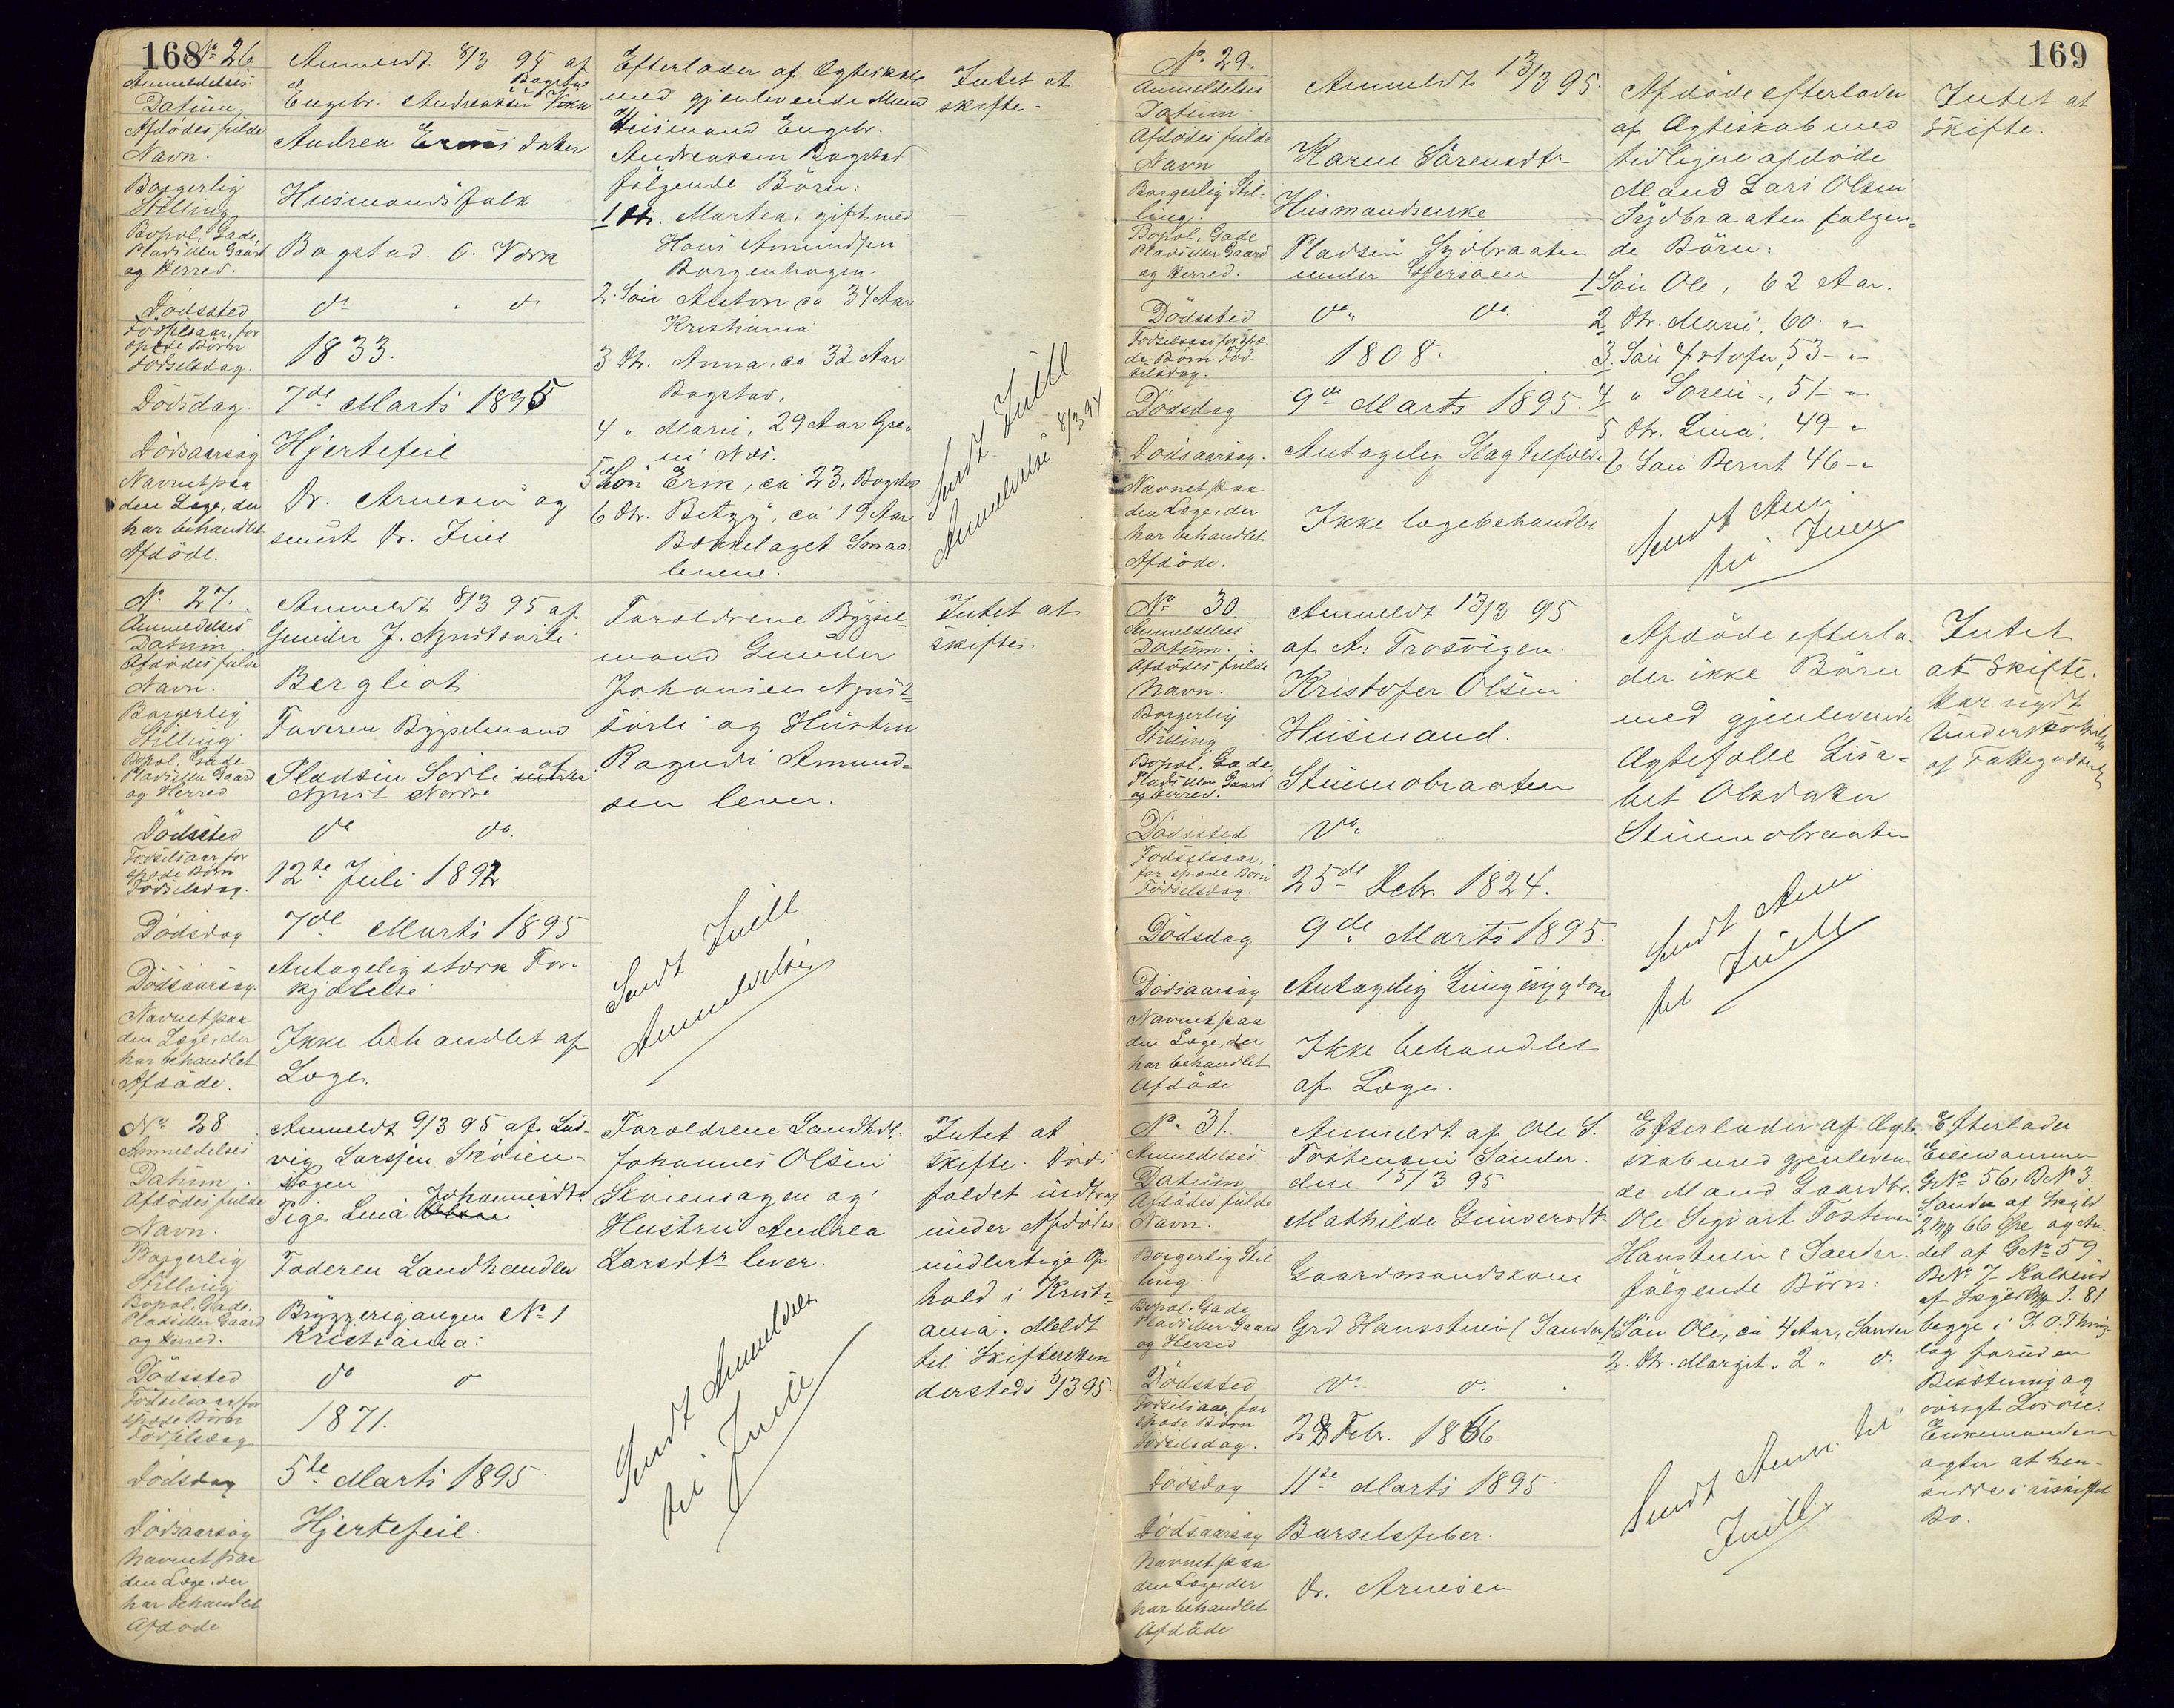 168
No 26
Anmeldelses
Datum.
Anmeldt 8/3 95 af
Engebr. Andreassen Bagstad
Afdödes fulde
Navn.
Andrea Datter
Borgerlig
Stilling
Husmandsfolk
Bopæl, Gade,
Plads eller Gaard
og Herred.
Bagstad. O.
Dödssted
do . do
Födselsaar, for
spæde Börn
Födselsdag.
1833.
Dödsdag.
7de Marts 1895
Dödsaarsag
Hjertefeil
Navnet paa
den Læge, der
har behandlet
Afdöde.
Dr. Arnesen og
senest Dr. Juell
Efterlader af Ægteskab
med gjenlevende Mand
Husmand Engebr.
Andreassen Bagstad
fölgende Börn:
1 Dtr. Martea, gift med
Hans Amundsen
Borgenhagen.
2. Sön Anton ca 34 Aar
Kristiania
3 Dtr. Anna, ca 32 Aar
Bagstad,
4 " Marie, 29 Aar
i Næs.
5 Sön Erik, ca 23, Bagstad
6 Dtr. Betzy, ca 19 Aar
Bækkelaget Smaa-
lenene.
Intet at
skifte.
Sendt Juell
Anmeldelse 8/3 94
No 27.
Anmeldelses
Datum.
Anmeldt 8/3 95 af
Gunder J.
Afdödes fulde
Navn.
Bergliot
Borgerlig
Stilling.
Faderen Bygselmand
Bopæl, Gade
Plads eller Gaard
og Herred
Pladsen Sörli
Nordre
Dödssted
do do.
Födselsaar for
spæde Börn
Födselsdag.
12te Juli 1892
Dödsdag
7de Marts 1895
Dödsaarsag.
Antagelig stærk For-
kjölelse
Navnet paa
den Læge, der
har behandlet
Afdöde.
Ikke behandlet af
Læge.
Forældrene Bygsel-
mand Gunder
Johansen
sörli og Hustru
Ragndi Amund-
sen lever.
Intet at
skifte.
Sendt Juell
Anmeldelse
No 28.
Anmeldelses
Datum.
Anmeldt 9/3 95 af Lud-
vig Larssen Sköien-
hagen
Afdödes fulde
Navn.
Pige Lina Johannesdtr
Borgerlig
Stilling
Faderen Landhandler
Bopæl, Gade.
Plads eller Gaard
og Herred.
Bryggerigangen No 1
Kristiania.
Dödssted
do do
Födselsaar for
spæde Börn
Födselsdag
1871.
Dödsdag
5te Marts 1895
Dödsaarsag
Hjertefeil.
Navnet paa
den Læge, der
har behandlet
Afdöde
Forældrene Landhdl.
Johannes Olsen
Skiensagen og
Hustru Andrea
Larsdtr lever.
Intet at
skifte. Döds
faldet indtraf
under Afdödes
midlertige Op-
hold i Kristi-
ania. Meldt
til Skifteretten
dersteds 5/3 95.
Sendt Anmeldelse
til Juell
169
No. 29.
Anmeldelses
Datum
Anmeldt 13/3 95.
Afdödes fulde
Navn
Karen Sörensdtr
Borgerlig Stil-
ling.
Husmandsenke
Bopæl, Gade
Plads eller Gaard
og Herred.
Pladsen Sydbraaten
under
Dödssted
do. do.
Födselsaar for spæ-
de Börn Föd-
selsdag.
1808.
Dödsdag
9de Marts 1895.
Dödsaarsag.
Antagelig Slagtilfælde
Navnet paa
den Læge, der
har behandlet
Afdöde.
Ikke lægebehandlet
Afdöde efterlader
af Ægteskab med
tidligere afdöde
Mand Lars Olsen
Sydbraaten fölgen-
de Börn:
1 Sön Ole, 62 Aar.
2 Dtr. Marie, 60. "
3. Sön Kristofer, 53 - "
4 " Soren -, 51 - "
5 Dtr. Lina, 49 - "
6. Sön Bernt 46 - "
Intet at
skifte.
Sendt Anm.
til Juell
No 30
Anmeldelses
Datum.
Anmeldt 13/3 95
af A. Trosvigen.
Afdödes fulde
Navn.
Kristofer Olsen
Borgerlig
Stilling
Husmand.
Bopæl, Gade
Plads eller Gaard
og Herred.
Stummobraaten
Dödssted
do.
Födselsaar,
for spæde Börn
Födselsdag.
25de Debr. 1824.
Dödsdag
9de Marts 1895.
Dödsaarsag
Antagelig Lungesygdom
Navnet paa
den Læge, der
har behandlet
Afdöde
Ikke behandlet
af Læge.
Afdöde efterla-
der ikke Börn
med gjenlevende
Ægtefolle Lisa-
bet Olsdatter
Stummobraaten
Intet
at skifte.
Har nydt
Understöttelse
af Fattigvæsenet
Sendt Anm.
til Juell
No. 31.
Anmeldelses
Datum
Anmeldt af Ole S.
Tostensen Sander.
den 15/3 95
Afdödes fulde
Navn.
Mathilde Gunversdtr
Borgerlig Stil
ling.
Gaardmandskone
Bopæl, Gade
Plads eller Gaard
og Herred
Grd Hansstuen (Sander)
Dödssted
do do.
Födselsaar, for
spæde Börn
Födselsdag.
28 Febr. 1866.
Dödsdag
11te Marts 1895.
Dödsaarsag
Barselsfeber.
Navnet paa
den Læge, der
har behandlet
Afdöde
Dr. Arnesen
Efterlader af Ægte-
skab med gjenleven-
de Mand Gaardbr.
Ole Sigvart Tostensen
Hansstuen (Sander.
fölgende Börn:
1 Sön Ole, ca 4 Aar, Sander
2. Dtr. Margit " 2 " do
Efterlader
Eiendommen
G.No 56, B.No 3.
Sander af Skyld
2 Mk 66 Öre og An-
del af G.No 59
B.No 7
af Skyld Mk 1.81
begge i S. O. Thing-
lag foruden
Besætning og
övrigt Lösöre.
Enkemanden
agter at hen-
sidde i uskiftet
Bo.
Sendt Anm. til
Juell